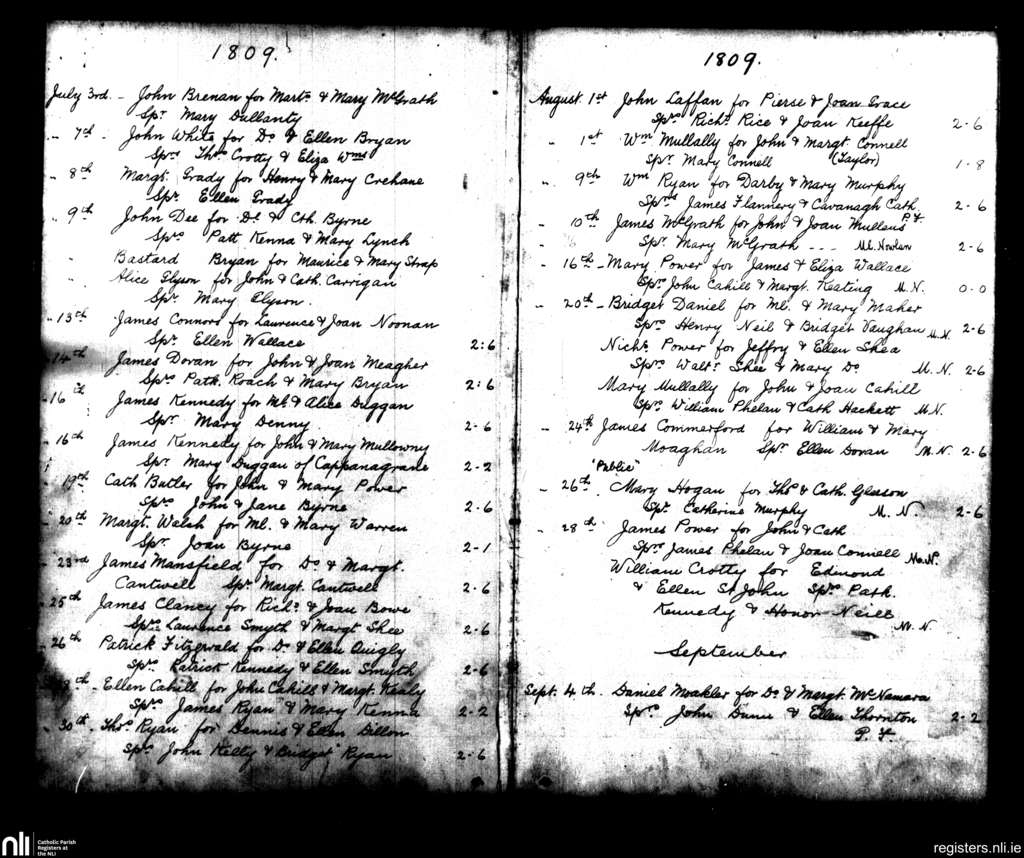 1809.
July 3rd. - John Brenan for Martn & Mary McGrath
Spr. Mary Dullanty
" 7th. John White for Do. & Ellen Bryan
Sprs Thos Crotty & Eliza Wms
" 8th Margt. Grady for Henry & Mary Crehane
Spr. Ellen Grady
" 9th John Dee for Do. & Cth. Byrne
Sprs Patt Kenna & Mary Lynch
Bastard Bryan for Maurice & Mary Strap
Alice Glyson for John & Cath. Carrigan
Spr. Mary Glyson.
" 13th James Connors for Laurence & Joan Noonan
Spr. Ellen Wallace 2:6
14th James Dovan for John & Joan Meagher
Sprs Patk. Roach & Mary Bryan 2:6
" 16th James Kennedy for Ml. & Alice Duggan
Spr. Mary Denny 2-6
" 16th James Kennedy for John & Mary Mullowny
Spr. Mary Duggan of Cappanagrane 2-2
" 19th Cath Butler for John & Mary Power
Sprs John & Jane Byrne 2-6
" 20th Margt. Walsh for Ml. & Mary Warren
Spr. Joan Byrne 2-1
" 23rd James Mansfield for Do & Margt.
Cantwell Spr. Margt. Cantwell 2-6
" 25th James Clancy for Richd. & Joan Bowe
Sprs Laurence Smyth & Margt Shee 2-6
" 26th Patrick Fitzgerald for Do. & Ellen Quigly
Sprs Patrick Kennedy & Ellen Smyth 2-6
Ellen Cahill for John Cahill & Margt. Kealy
Sprs James Ryan & Mary Kenna 2-2
" 30th. Thos Ryan for Dennis & Ellen Dillon
Sprs John Kelly & Bridget Ryan 2-6
1809.
August 1st John Laffan for Pierse & Joan Grace
Sprs Richd. Rice & Joan Keeffe 2-6
" 1st Wm Mullally for John & Margt. Connell
Spr. Mary Connell (Taylor) 1-8
" 9th Wm Ryan for Darby & Mary Murphy
Sprs James Flannery & Cavanagh Cath. 2-6
" 10th James McGrath for John & Joan Mullens P.F.
Spr. Mary McGrath --- Ml. Nowlan 2-6
" 16th - Mary Power for James & Eliza Wallace
Sprs John Cahill & Margt. Keating M.N. 0-0
" 20th - Bridget Daniel for Ml. & Mary Maher
Sprs Henry Neil & Bridget Vaughan M.N. 2-6
Nichs. Power for Jeffry & Ellen Shea
Sprs Walt. Shee & Mary Do. M.N. 2-6
Mary Mullally for John & Joan Cahill
Sprs William Phelan & Cath Hackett M.N.
- 24th James Commerford for William & Mary
Moaghan Spr. Ellen Dovan M.N. 2-6
"Public"
- 26th. Mary Hogan for Thos & Cath. Gleason
Spr. Catherine Murphy M.N. 2-6
- 28th James Power for John & Cath
Sprs James Phelan & Joan Connell M.N.
William Crotty for Edmond
& Ellen St John Sprs Patk.
Kennedy & Honor Neill
M.N.
September
Sept. 4th. Daniel Moakler for Do. & Margt. McNamara
Sprs John Dunn & Ellen Thornton 2-2
P.F.
nli Catholic Parish
Registers at
the NLI
registers.nli.ie